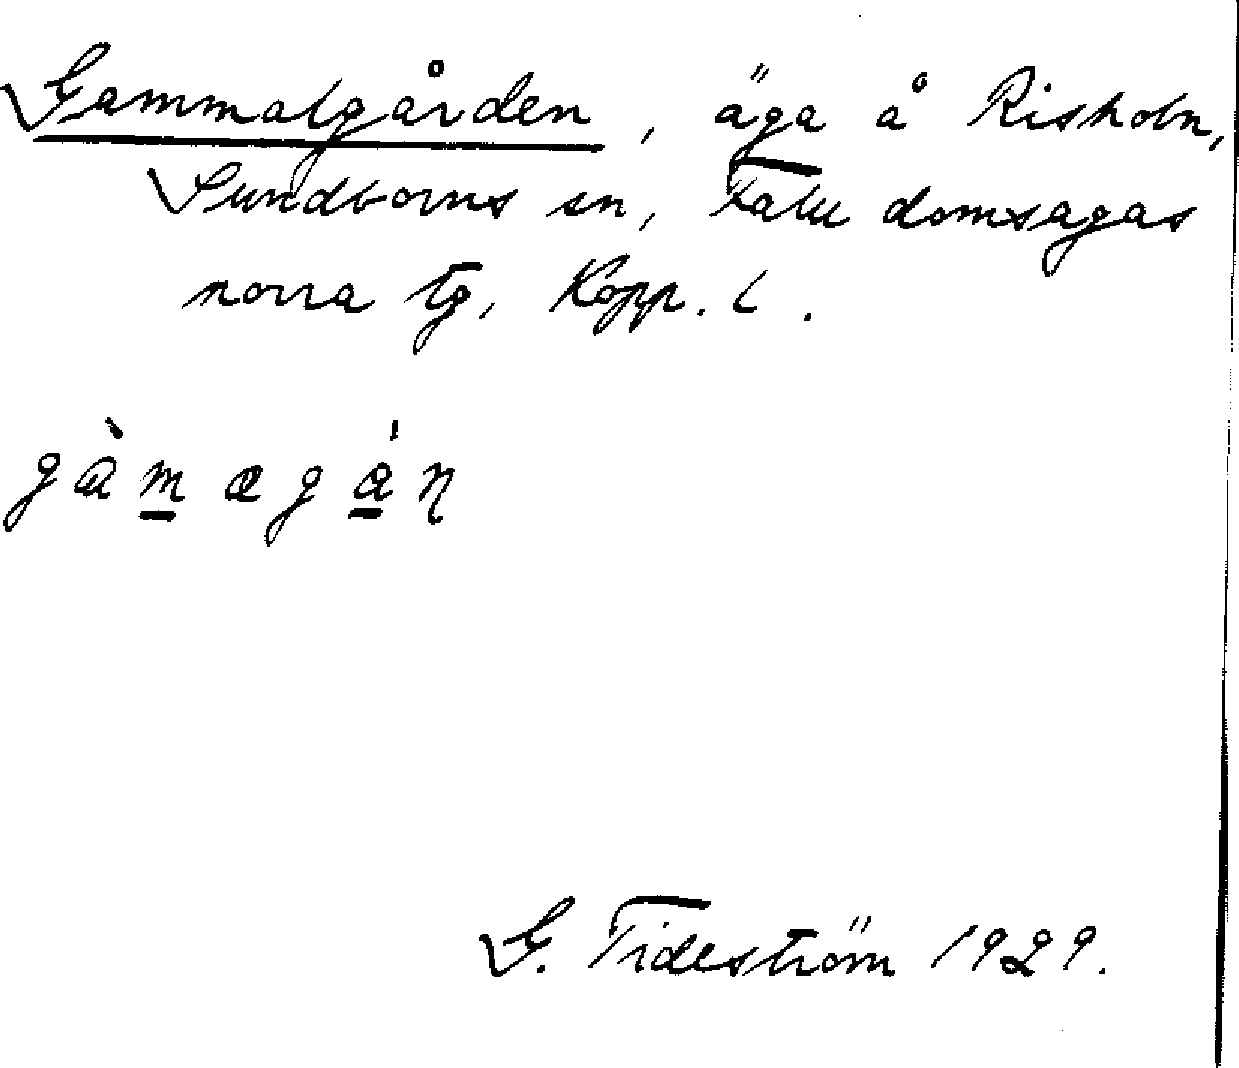 Gammalgården, äga å Risholn,
Sundborns sn, Falu domsagas
norra tg, Kopp. l.
gàmægáɳ
G. Tideström 1929.